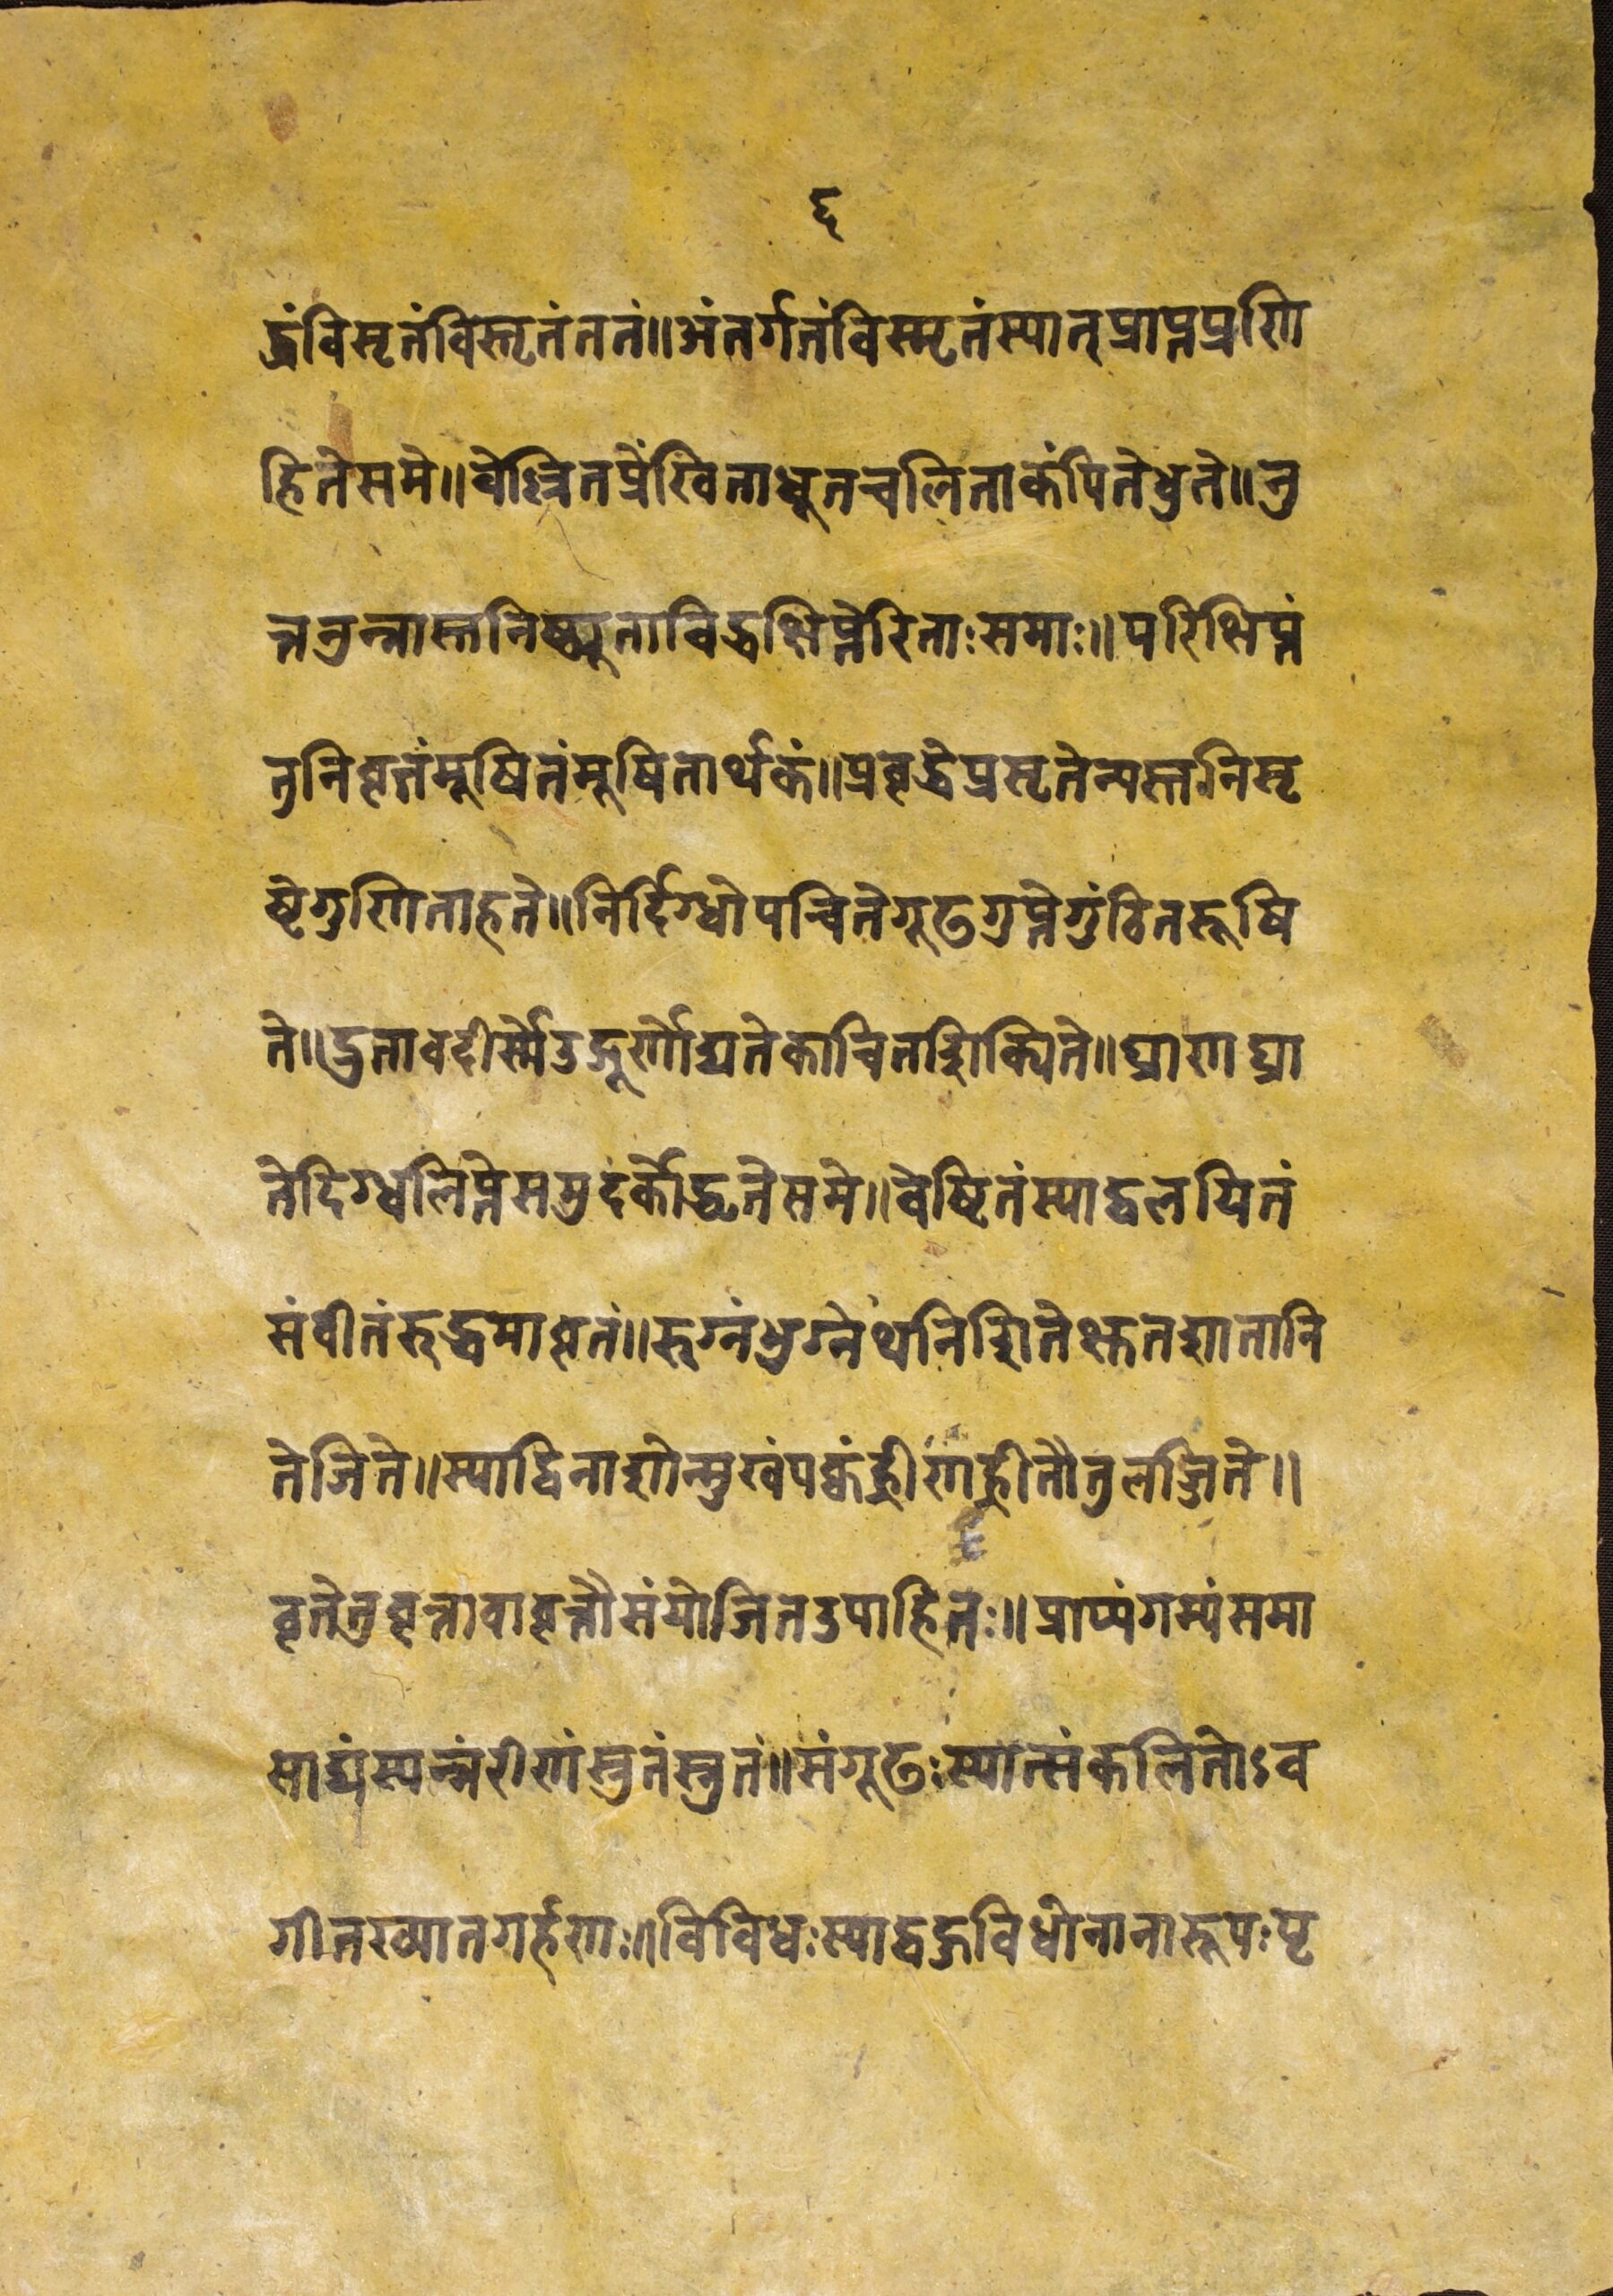 ६
द्धंविसृतंविस्तृतंततं॥अंतर्गतंविस्मृतंस्यात्प्राप्तप्रणि
हितेसमे॥वेल्लितप्रेंखिताधूतचलिताकंपितेधुते॥नु
त्तनुन्नास्तनिष्ठ्यूताविद्धक्षिप्तेरिताःसमाः॥परिक्षिप्तं
तुनिवृत्तंमूषितंमूषितार्थकं॥प्रवृद्धेप्रसृतेन्यस्तनिसृ
ष्टेगुणिताहते॥निर्दिग्धोपचितेगूढगुप्तेगुंठितरूषि
ते॥द्रुतावदीर्णेउद्गूर्णोद्यतेकाचितशिक्यिते॥घ्राणघ्रा
तेदिग्धलिप्तेसमुदक्तोद्धृतेसमे॥वेष्टितंस्याद्वलयितं
संवीतंरुद्धमावृतं॥रुग्नंभुग्नेथनिशितेक्ष्णतशातानि
तेजिते॥स्याद्विनाशोन्मुखंपक्वंह्रीणह्रीतौतुलज्जिते॥
वृतेतुवृत्तवावृत्तौसंयोजितउपाहितः॥प्राप्यंगम्यंसमा
साद्यंस्यन्नंरीणंस्नुतंस्रुतं॥संगूढःस्यात्संकलितोऽव
गीतख्यातगर्हणः॥विविधःस्याद्बहुविधोनानारूपःपृ